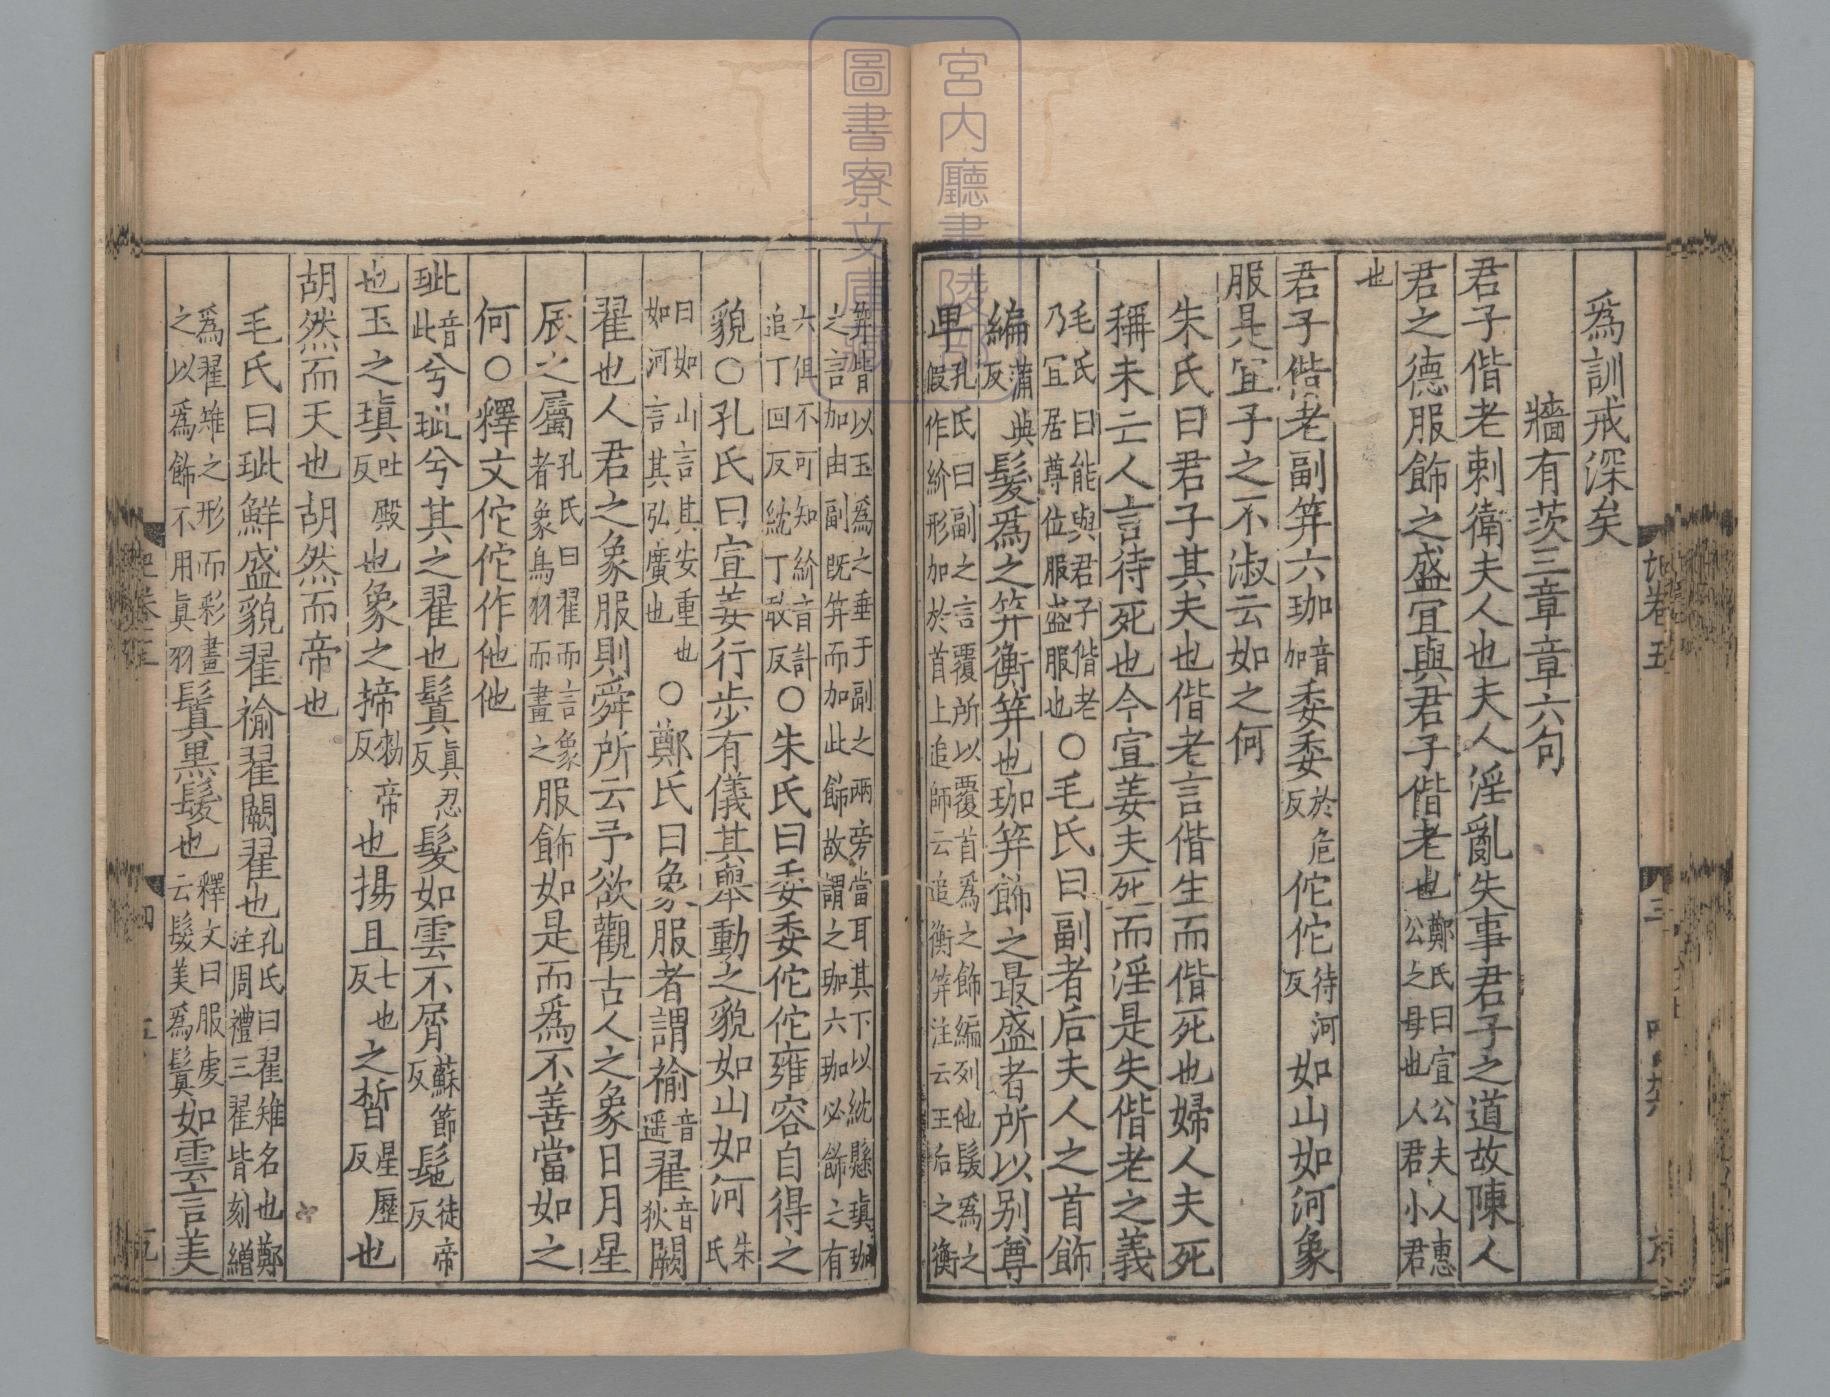 爲訓戒深矣
牆有茨三章章六句
君子偕老刺衛夫人也夫人淫亂失事君子之道故陳人
君之德服飾之盛宜與君子偕老也鄭氏曰宣公夫人惠公之母也人君小君
也
君子偕老副笄六珈音加委委於危反佗佗待河反如山如河象
服是宜子之不淑云如之何
朱氏曰君子其夫也偕老言偕生而偕死也婦人夫死
稱未亡人言待死也今宣姜夫死而淫是失偕老之義
毛氏曰能與君子偕老乃宜居尊位服盛服也○毛氏曰副者后夫人之首飾
編蒲典反髮爲之笄衡笄也珈笄飾之最盛者所以別尊
卑孔氏曰副之言覆所以覆首爲之飾編列他髮爲之假作紒形加於首上追師云追衡笄注云王后之衡
笄皆以玉爲之垂于副之兩旁當耳其下以紞懸瑱珈之言加由副旣笄而加此飾故謂之珈六珈必飾之有
六俱不可知紒音計追丁回反紞丁敢反○朱氏曰委委佗佗雍容自得之
貌○孔氏曰宣姜行步有儀其舉動之貌如山如河朱氏
曰如山言其安重也如河言其弘廣也○鄭氏曰象服者謂褕音遥翟音狄闕
翟也人君之象服則舜所云予欲觀古人之象日月星
辰之屬孔氏曰翟而言象者象鳥羽而畫之服飾如是而爲不善當如之
何○釋文佗佗作他他
玼音此兮玼兮其之翟也鬒眞忍反髮如雲不屑蘇節反髢徒帝反
也玉之瑱吐殿反也象之揥勑帝反也揚且七也反之晳星歷反也
胡然而天也胡然而帝也
毛氏曰玼鮮盛貌翟褕翟闕翟也孔氏曰翟雉名也鄭注周禮三翟皆刻繒
爲翟雉之形而彩畫之以爲飾不用眞羽鬒黑髮也釋文曰服虔云髮美爲鬒如雲言美
宮内廳書陵部
圖書寮文庫藏